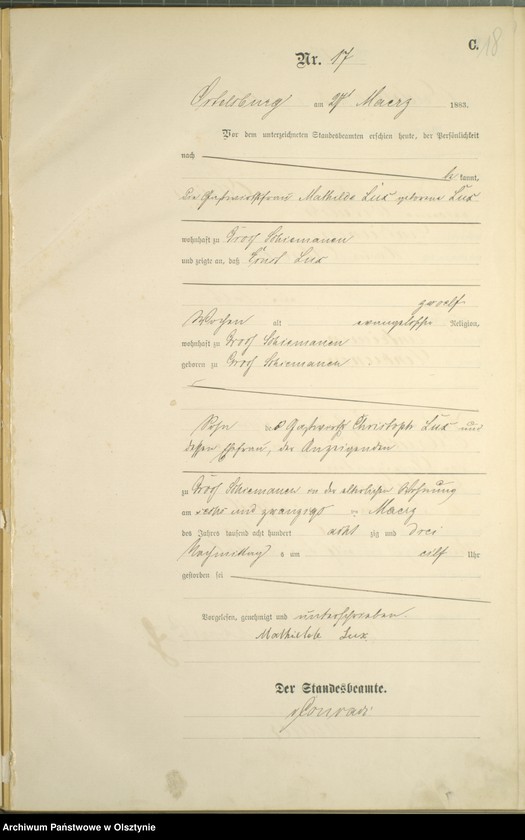 C. 18
Nr. 17
Ortelsburg am 27ᵗ Maerz 1883.
Vor dem unterzeichneten Standesbeamten erschien heute, der Persönlichkeit
nach
be kannt,
die Gastwirthsfrau Mathilde Lux geborene Lux
wohnhaft zu Groß Schiemanen
und zeigte an, daß Ernst Lux
zwoelf
Wochen alt evangelischer Religion,
wohnhaft zu Groß Schiemanen
geboren zu Groß Schiemanen
Sohn des Gastwirths Christoph Lux und
dessen Ehefrau, der Anzeigenden
zu Groß Schiemanen in der elterlichen Wohnung
am sechs und zwanzigst en Maerz
des Jahres tausend acht hundert acht zig und drei
Nachmittag s um eilf Uhr
gestorben sei
Vorgelesen, genehmigt und unterschrieben.
Mathielde Lux
Der Standesbeamte.
Conradi
Archiwum Państwowe w Olsztynie